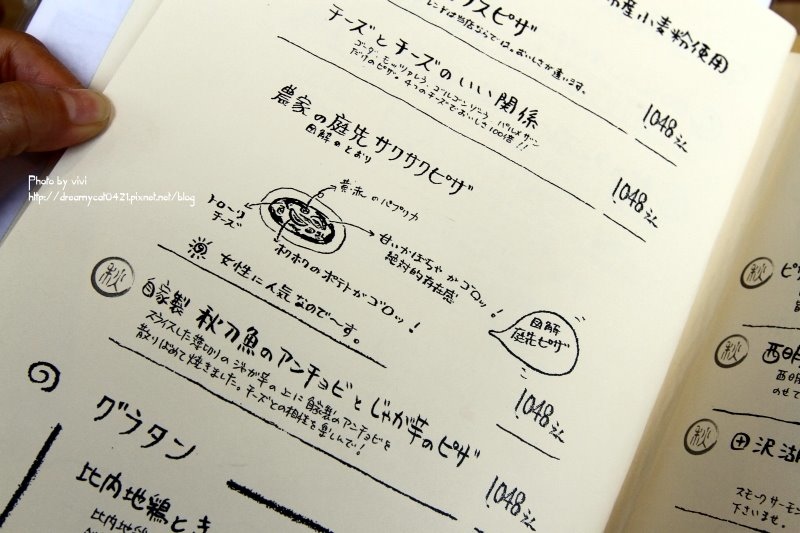 産小麦粉使用
クスピザ
レンドは当店ならでは。おいしさが違います。
1048
チーズとチーズのいい関係
ゴーダ・モッツァレラ・ゴルゴンゾーラ・パルメザン
だけのピザ。4つのチーズでおいしさ100倍!!
1048
農家の庭先サクサクピザ
図解のとおり
黄・赤のパプリカ
トローリ
チーズ
甘いかぼちゃがゴロッ!
絶対的存在感
ホクホクのポテトがゴロッ!
女性に人気なので〜す。
図解
庭先ピザ
1048
秋
自家製 秋刀魚のアンチョビとじゃが芋のピザ
スライスした薄切りのジャガ芋の上に自家製のアンチョビを
散りばめて焼きました。チーズとの相性を楽しんで!
1048
グラタン
比内地鶏と
比内地
秋
ピ
秋
西明
西明
のせて
秋
田沢湖
スモークサーモン
下さいませ。
Photo by vivi
http://dreamycat0421.pixnet.net/blog